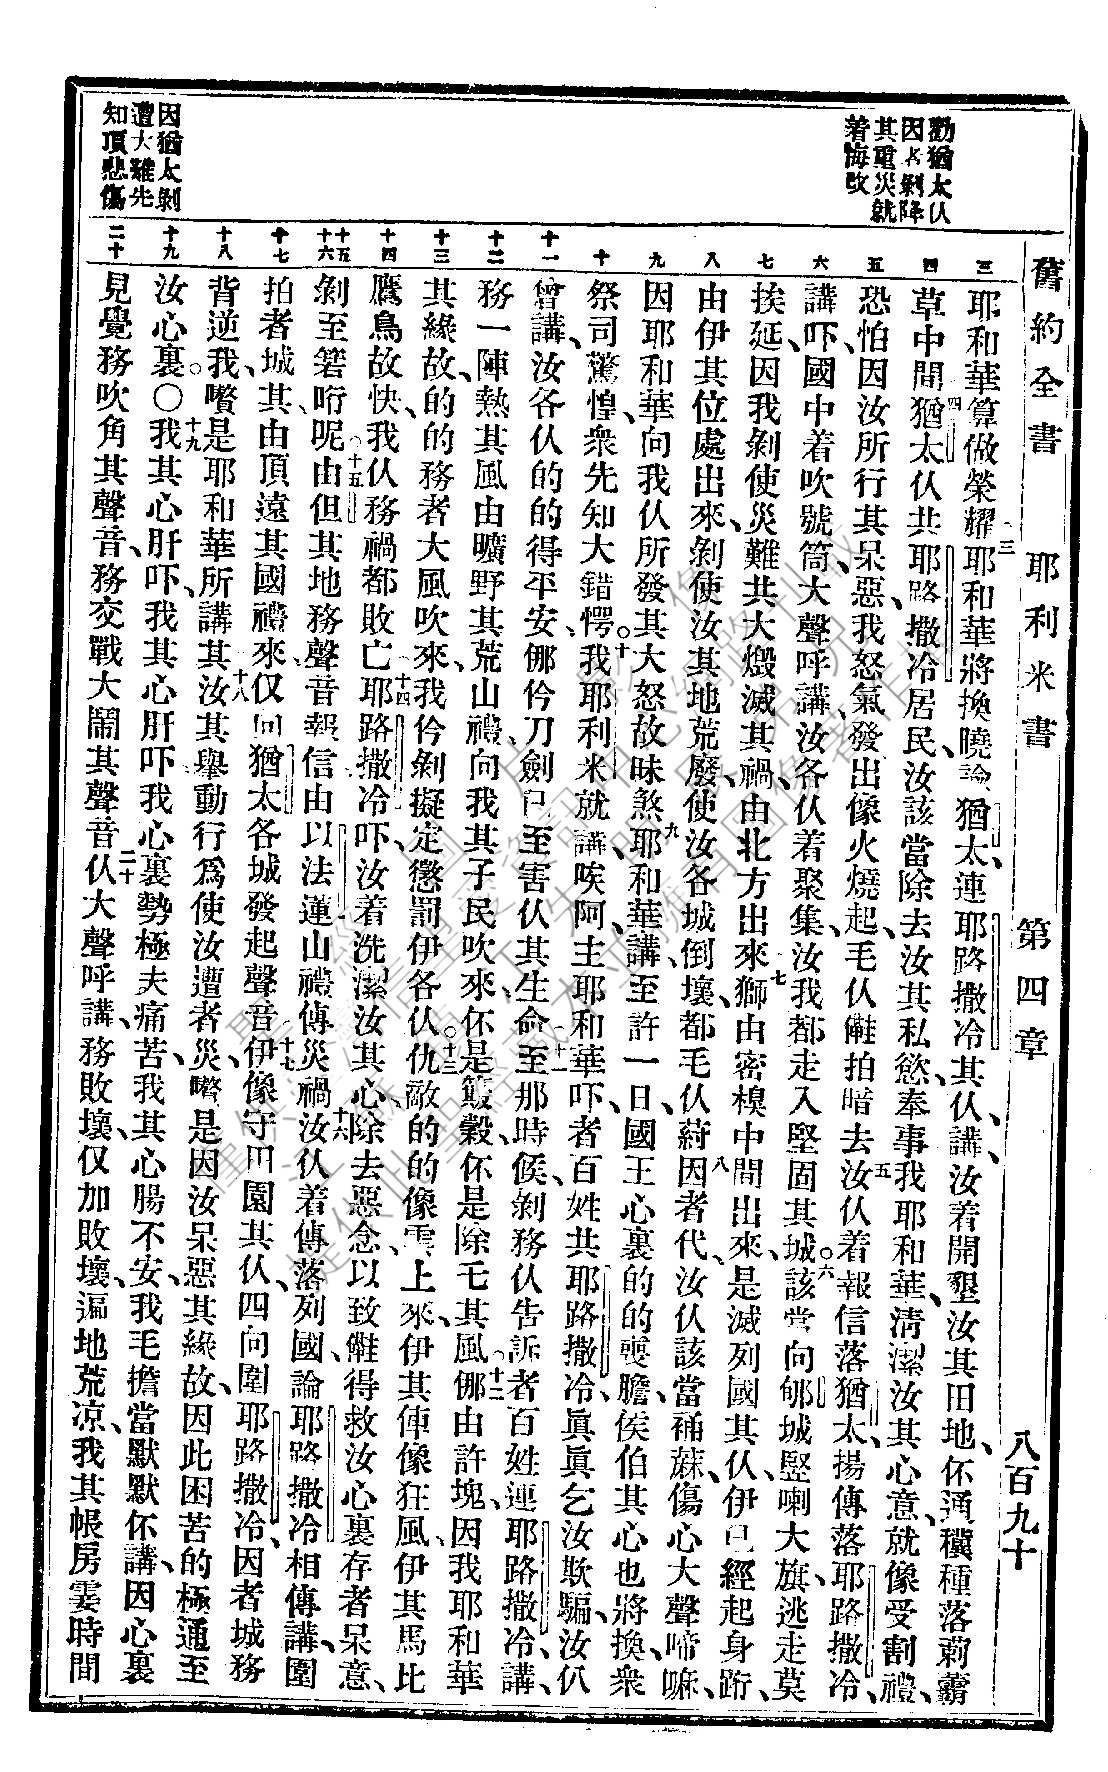 舊約全書　耶利米書　第四章　八百九十
勸猶太仸
因者剝降
其重災就
着悔改
因猶太剝
遭大難先
知項悲傷
三 四 五 六 七 八 九 十 十一 十二 十三 十四 十五 十六 十七 十八 十九 二十
耶和華算做榮耀三耶和華將換曉諭猶太連耶路撒冷其仸講、汝着開墾汝其田地、伓通䆁種落莿
草中間、四猶太仸共耶路撒冷居民、汝該當除去汝其私慾、奉事我耶和華、清潔汝其心意、就像受割禮、
恐怕因汝所行其呆惡、我怒氣發出像火燒起、毛仸拍暗去、五汝仸着報信落猶太、揚傳落耶路撒冷、
講、吓、國中着吹號筒、大聲呼講、汝各仸着聚集、汝我都走入堅固其城。六該當向郇城豎喇大旗、逃走莫
挨延、因我剝使災難共大燬滅其禍、由北方出來、七獅由密模中間出來、是滅列國其仸、伊已經起身跲、
由伊其位處出來、剝使汝其地荒廢、使汝各城倒壞、都毛仸蒔、八因者代、汝仸該當補蔴、傷心大聲啼嘛、
因耶和華向我仸所發其大怒故昧煞、九耶和華講、至許一日、國王心裏的的喪膽、侯伯其心也將換、衆
祭司驚惶、衆先知大錯愕。十我耶利米就講、唉阿、主耶和華吓、者百姓共耶路撒冷、眞眞乞汝欺騙、汝仸
曾講、汝各仸的的得平安、那仱刀劍已至害仸其生命、十一至那時候、剝務仸告訴者百姓連耶路撒冷講、
務一陣熱其風、由曠野其荒山禮、向我其子民吹來、伓是簸穀、伓是除乇其風、十二那由許塊、因我耶和華
其緣故、的的務者大風吹來、我仱剝擬定懲罰伊各仸。十三仇敵的的像雲上來、伊其俥像狂風、伊其馬比
鷹鳥故快、我仸務禍都敗亡、十四耶路撒冷吓、汝着洗潔汝其心、除去惡念、以致得救、汝心裏存者呆意、
剝至箬昕呢、十五由但其地務聲音報信、由以法蓮山禮傳災禍、十六汝仸着傳落列國、論耶路撒冷相傳講、圍
拍者城其、由頂遠其國禮來、仅向猶太各城發起聲音、十七伊像守田園其仸、四向圍耶路撒冷、因者城務
背逆我、嚽是耶和華所講其、十八汝其舉動行爲、使汝遭者災、嚽是因汝呆惡其緣故、因此困苦的極通至
汝心裏。〇十九我其心肝吓、我其心肝吓、我心裏勢極夫痛苦、我其心腸不安、我毛擔當默默伓講、因心裏
見覺務吹角其聲音、務交戰大鬧其聲音、二十仸大聲呼講、務敗壞、仅加敗壞、遍地荒凉、我其帳房霎時間